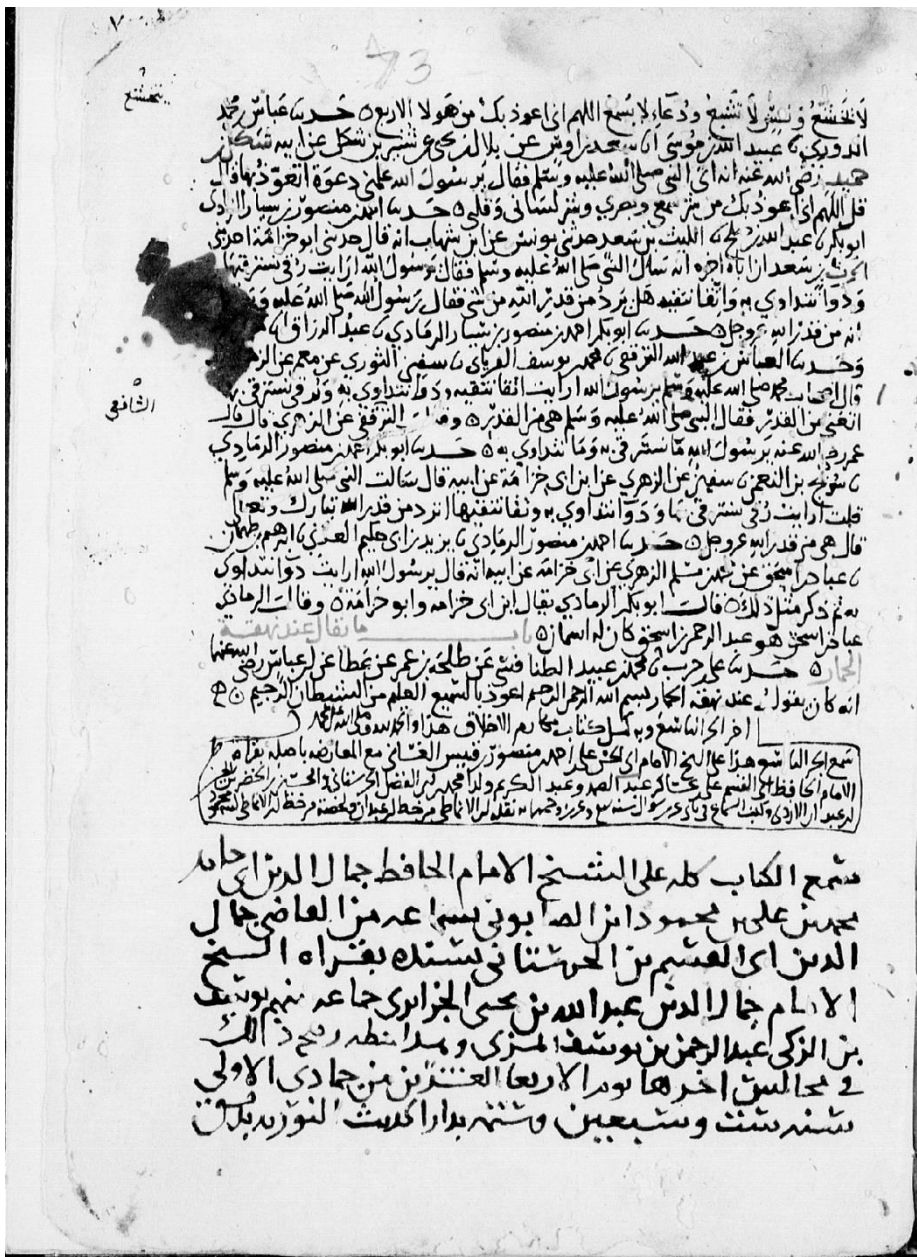 يخشع
لا تخشع ونفس لا تشبع ودعاء لا يسمع اللهم اني اعوذ بك من هولا الاربع ٥ حدثنا عباس بن محمد
الدوري عبيد الله بن موسى سعد بن اوس عن بلال بن يحيى عن شتير بن شكل عن ابيه شكل بن
حميد رضي الله عنه انه اتى النبي صلى الله عليه وسلم فقال يرسول الله علمني دعوة اتعوذ بها قال
قل اللهم اني اعوذ بك من شر سمعي وبصري وشر لساني وقلبي ٥ حدثنا احمد بن منصور بن سيار الرمادي
ابو بكر عبد الله بن صالح الليث بن سعد حدثني يونس عن ابن شهاب انه قال حدثني ابو خزامة احد بني
الحرث بن سعد ان اباه اخبره انه سال النبي صلى الله عليه وسلم فقال يرسول الله ارايت رقى نسترقيها
ودوا نتداوى به وتقا نتقيه هل يرد من قدر الله من شي فقال رسول الله صلى الله عليه
انه من قدر الله عز وجل ٥ حدثنا ابو بكر احمد بن منصور بن سيار الرمادي عبد الرزاق
وحدثنا العباس بن عبد الله الترقفي محمد بن يوسف الفريابي سفين الثوري عن معمر عن
قال اصحاب محمد صلى الله عليه وسلم يرسول الله ارايت اتقا نتقيه ودوا نتداوى به ورقى نسترقي
الشافعي
اتغني من القدر فقال النبي صلى الله عليه وسلم هي من القدر ٥ الترقفي عن الزهري قال قال
عمر رضي الله عنه يرسول الله ما نسترقي به وما نتداوى به ٥ حدثنا ابو بكر احمد بن منصور الرمادي
سريج بن النعمن سفين عن الزهري عن ابن ابي خزامة عن ابيه قال سالت النبي صلى الله عليه وسلم
قلت ارايت رقى نسترقي بها ودوا نتداوى به وتقا نتقيها اترد من قدر الله تبارك وتعالى
قال هي من قدر الله عز وجل ٥ حدثنا احمد بن منصور الرمادي يزيد بن ابي حكيم العدني ابرهيم بن طهمان
عباد بن اسحق عن محمد بن مسلم الزهري عن ابي خزامة عن ابيه انه قال يرسول الله ارايت دوا نتداوى
به ثم ذكر مثل ذلك ٥ قال ابو بكر الرمادي يقال ابن ابي خزامه وابو خزامة ٥ وقال الرمادي
عباد بن اسحق هو عبد الرحمن بن اسحق كان له اسمان ٥ باب ما يقال عند نهقة
الحمار ٥ حدثنا علي بن حرب محمد بن عبيد الطنافسي عن طلحة بن عمر عن عطا عن ابن عباس رضي الله عنهما
انه كان يقول عند نهقة الحمار بسم الله الرحمن الرحيم اعوذ بالسميع العليم من الشيطان الرجيم ٥
اخر الجزء التاسع وبه كمل كتاب مكارم الاخلاق
سمع الجزء التاسع هذا على الشيخ الامام ابي الحسن علي بن احمد بن منصور بن قبيس الغساني مع المعارضه باصله بقراة
الامام الحافظ ابي القسم علي بن عساكر عبد الصمد وعبد الكريم ولدا محمد بن ابي الفضل الحرستاني
سمع الكتاب كله على الشيخ الامام الحافظ جمال الدين ابي حامد
محمد بن علي بن محمود ابن الصابوني بسماعه من القاضي جمال
الدين ابي القسم بن الحرستاني بسنده بقراه الشيخ
الامام جمال الدين عبد الله بن يحيى الجزايري جماعه منهم يوسف
بن الزكي عبد الرحمن بن يوسف المزي وهذا خطه وصح ذلك
في مجالس اخرها يوم الاربعا العشرين من جمادى الاولى
سنه ست وسبعين وستمه بدار الحديث النوريه بدمشق